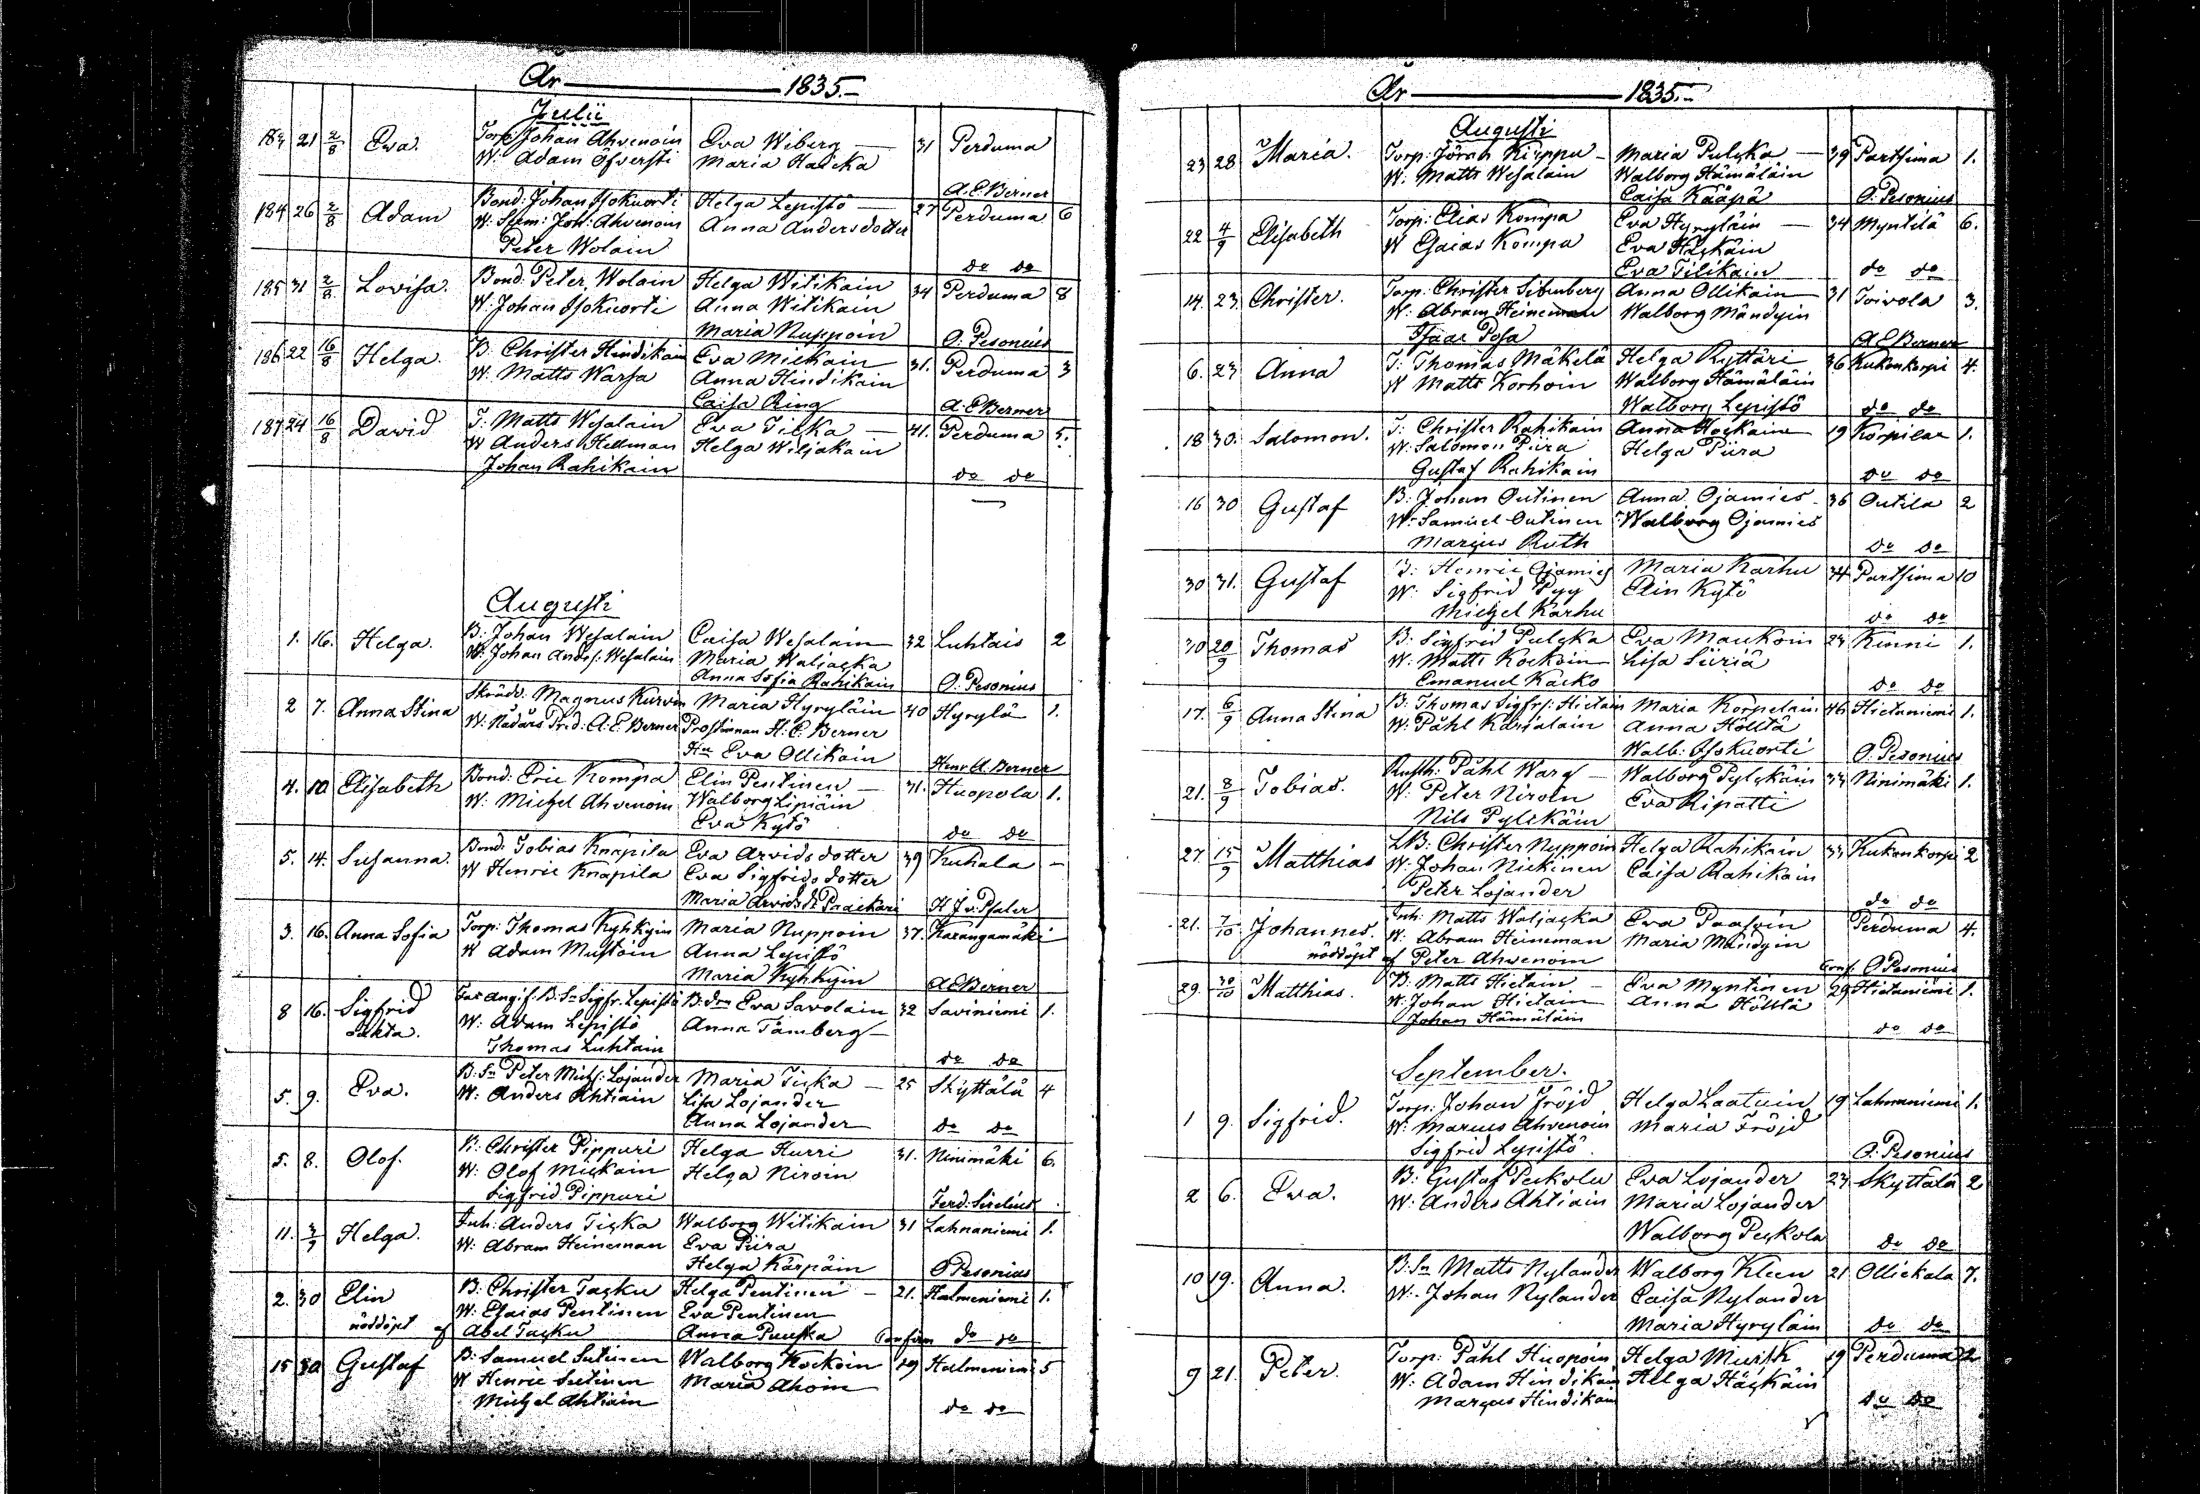 År 1835.
Julii
183 21 2/8 Eva. Torp: Johan Ahvenoin Eva Wiberg 31 Perduma
W: Adam Öfversti Maria Hatcka
A. E. Berner
184 26 2/8 Adam Bond: Johan Isokuorti Helga Lepistö 27 Perduma 6
W: Joh: Ahvenoin Anna Andersdotter
Peter Wolain do do
185 31 2/8 Lovisa. Bond: Peter Wolain Helga Witikain 34 Perduma 8
W: Johan Isokuorti Anna Witikain
Maria Nuppoin O. Pesonius
186 22 16/8 Helga. B: Christer Hindikain Eva Miekain 31. Perduma 3
W: Matts Warsa Anna Hindikain
Caisa Ring A. E Berner
187 24 16/8 David T: Matts Wesalain Eva Tilka 41. Perduma 5.
W Anders Hellman Helga Wiljakain
Johan Rahikain do do
Augusti
1. 16. Helga. B: Johan Wesalain Caisa Wesalain 32 Luhtais 2
W: Johan Anders: Wesalain Maria Waljacka
Anna Sofia Rahikain O: Pesonius
2 7. Anna Stina Skrädd. Magnus Kurvin Maria Hyryläin 40 Hyrylä 1.
W: A: E: Berner Prostinnan H: E: Berner
Eva Ollikain Henr A. Berner
4. 10 Elisabeth Bond: Eric Kompa Elin Pentinen 31. Huopola 1.
W: Michel Ahvenoin Walborg Lipiäin
Eva Kytö do do
5. 14. Susanna. Bond: Tobias Knäpila Eva Arvidsdotter 39 Kuhala –
W Henric Knäpila Eva Sigfridsdotter
Maria Arvidsdr Paaickari H J v: Pfaler
3. 16. Anna Sofia Torp: Thomas Kyhkyin Maria Nuppoin 37. Karangamäki
W Adam Mustoin Anna Lepistö
Maria Kyhkyin A E Berner
8 16. Sigfrid B: Sn Sigfr. Lepistö Eva Savolain 32 Saviniemi 1.
oäkta. W: Adam Lepistö Anna Tamberg
Thomas Luhtain do do
5. 9. Eva. B: Sn Peter Lojander Maria Ticka 25 Skyttälä 4
W: Anders Ahtiain Lisa Lojander
Anna Lojander do do
5. 8. Olof. B: Christer Pippuri Helga Hurri 31. Ninimäki 6.
W: Olof Mickain Helga Niroin
Sigfrid Pippuri Ferd: Sirelius
11. Helga. Inh: Anders Ticka Walborg Witikain 31 Lahnaniemi 1.
W: Abram Heineman Eva Piira
Helga Kärpäin O Pesonius
2. 30 Elin B: Christer Tacku Helga Pentinen 21. Halmeniemi 1.
W: Esaias Pentinen Eva Pentinen
nöddöpt af Abel Tacku Anna Puuska do do
15 30 Gustaf B: Samuel Sutinen Walborg Kockoin 29 Halmeniemi 5
W Henric Sutinen Maria Ahoin
Michel Ahtiain do do
År 1835.
Augusti
23 28 Maria. Torp: Jöran Kirppu Maria Pulcka 39 Partsima 1.
W: Matts Wesalain Walborg Hämäläin
Caisa Kääpä O: Pesonius
22 4/9 Elisabeth Torp: Elias Kompa Eva Hyryläin 34 Myntilä 6.
W Esaias Kompa Eva Häckäin
Eva Tilikain do do
14. 23. Christer. Torp: Christer Sitenberg Anna Ollikain 31 Toivola 3.
W: Abram Heineman Walborg Mändyin
Isaac Posa A E Berner
6. 23 Anna T: Thomas Mäkelä Helga Ryttäri 36 Kukonkorpi 4.
W Matts Korhoin Walborg Hämäläin
Walborg Lepistö do do
18 30. Salomon. T: Christer Rahikain Anna Kockain 19 Korpilax 1.
W: Salomon Piira Helga Piira
Gustaf Rahikain do do
16 30 Gustaf B: Johan Outinen Anna Ojamies 36 Outila 2
W: Samuel Outinen Walborg Ojamies
Marcus Ruth do do
30 31. Gustaf Henric Ojamies Maria Karhu 34 Partsima 10
W: Sigfrid Pyy Elin Kytö
Michel Karhu do do
30 20/9 Thomas B: Sigfrid Pulcka Eva Maukoin 24 Kinni 1.
W: Matts Kockoin Lisa Siiriä
Emanuel Kacko do do
17. 6/9 Anna Stina B: Thomas Sigfrs: Hietain Maria Korpelain 46 Hietaniemi 1.
W: Påhl Karsalain Anna Hölttä
Walb: Isokuorti O. Pesonius
21. 8/9 Tobias. Rusth: Påhl Warg Walborg Pylckäin 33 Ninimäki 1.
W: Peter Niroin Eva Ripatti
Nils Pylckäin
27. 15/9 Matthias LB: Christer Nuppoin Helga Rahikain 33 Kukonkorpi 2
W: Johan Nickinen Caisa Rahikain
Peter Lojander do do
21. 7/10 Johannes. Inh: Matts Waljacka Eva Paasoin Perduma 4.
W: Abram Heineman Maria Mändyin
nöddöpt af Peter Ahvenoin Conf: O Pesonius
29. 30/10 Matthias. B: Matts Hietain Eva Myntinen 29 Hietaniemi 1.
W: Johan Hietain Anna Hölttä
Johan Hämäläin do do
September.
1 9. Sigfrid. Torp: Johan Fröjd Helga Laatuin 19 Lahnaniemi 1.
W: Marcus Ahvenoin Maria Fröjd
Sigfrid Lepistö O. Pesonius
2 6. Eva. B: Gustaf Peckola Eva Lojander 23 Skyttälä 2
W: Anders Ahtiain Maria Lojander
Walborg Peckola do do
10 19. Anna. B: Sn Matts Nylander Walborg Kleen 21 Ollickala 7.
W: Johan Nylander Caisa Nylander
Maria Hyryläin do do
9 21. Peter. Torp: Påhl Huopoin Helga Musik 19 Perduma 2
W: Adam Hindikain Helga Häckäin
Marcus Hindikain do do